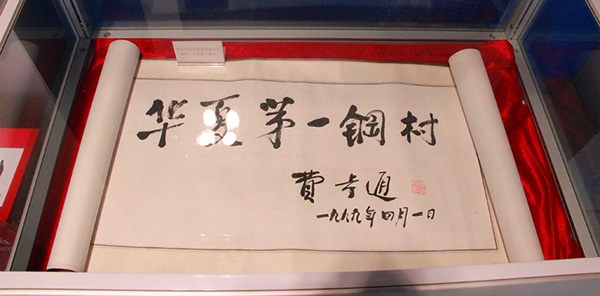 华夏第一鋼村
費孝通
一九九九年四月一日